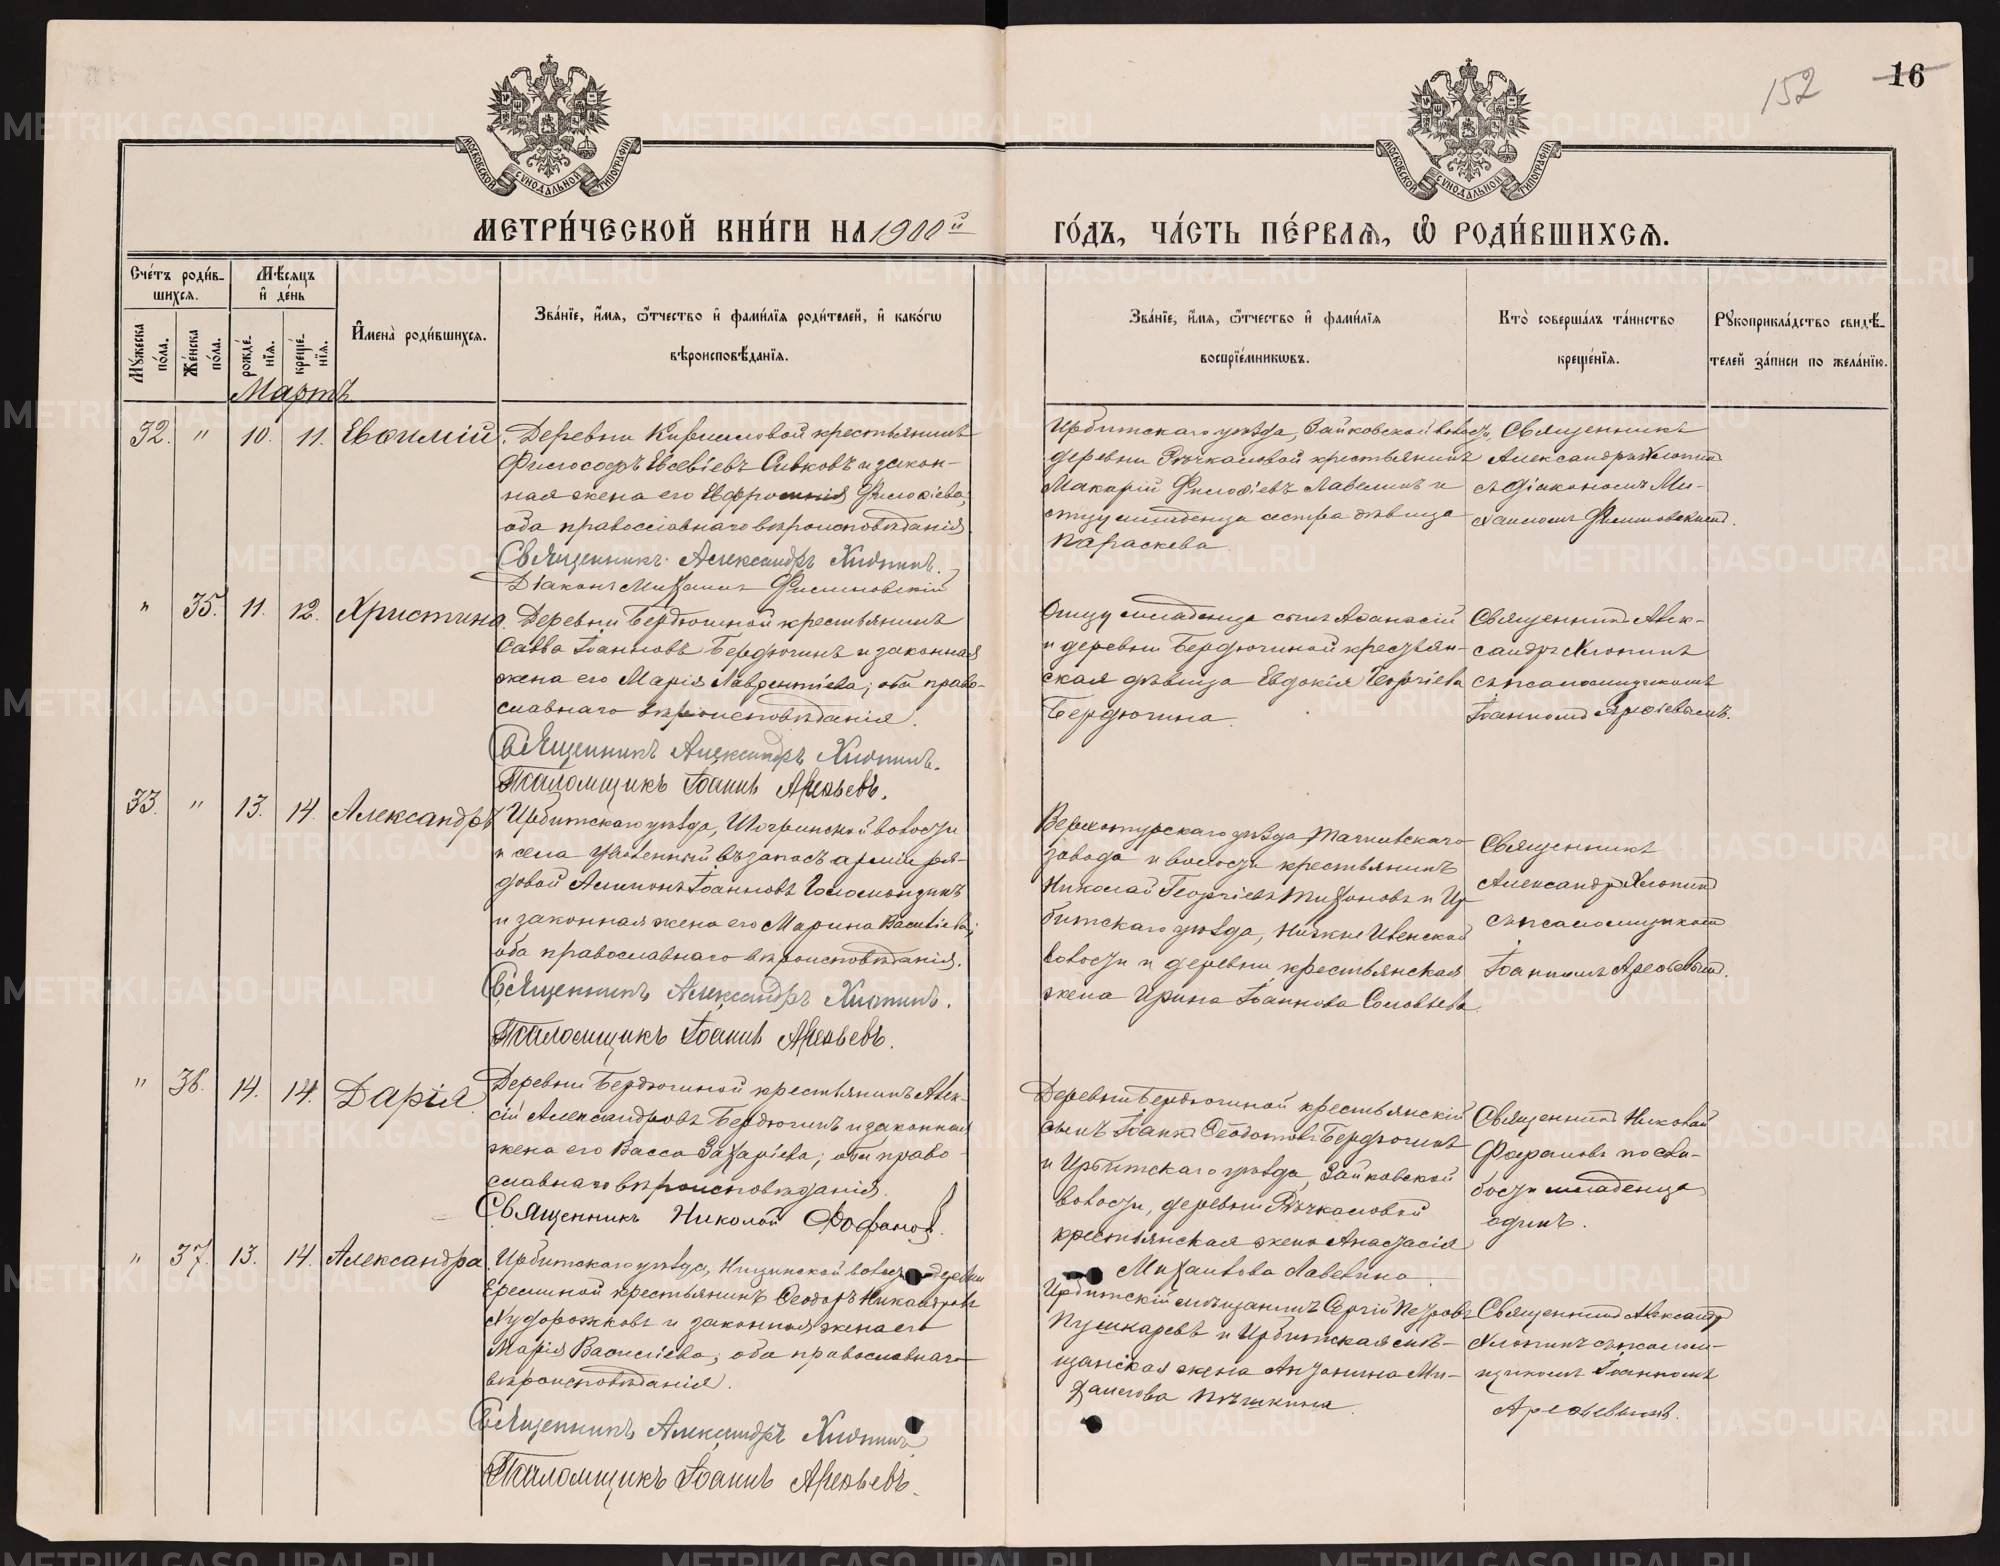 152
16
МОСКОВСКОЙ СѴНОДАЛЬНОЙ ТИПОГРАФІИ
МОСКОВСКОЙ СѴНОДАЛЬНОЙ ТИПОГРАФІИ
МЕТРИ́ЧЕСКОЙ КНИ́ГИ НА 1900й
ГО́ДЪ, ЧА́СТЬ ПЕ́РВАѦ, Ѽ РОДИ́ВШИХСѦ.
Сче́тъ роди́в-
шихсѧ.
Мѣ́сѧцъ
и҆ де́нь
Мꙋ́жеска по́ла.
Же́нска по́ла.
рожде́нїѧ.
креще́нїѧ.
И҆мена̀ роди́вшихсѧ.
Зва́нїе, и҆́мѧ, ѻ҆́тчество и҆ фамі́лїѧ роди́телей, и҆ како́гѡ
вѣроисповѣ́данїѧ.
Зва́нїе, и҆́мѧ, ѻ҆́тчество и҆ фамі́лїѧ
воспрїе́мникѡвъ.
Кто̀ соверша́лъ та́инство
креще́нїѧ.
Рꙋкоприкла́дство свидѣ́-
телей за́писи по жела́нїю.
Мартъ
32. " 10. 11. Евѳимій.
Деревни Кирилловой крестьянинъ
Философъ Евсевіевъ Сивковъ и закон-
ная жена его Евфросинія
оба православнаго вѣроисповѣданія
Священникъ Александръ Хлопинъ.
Діаконъ Михаилъ Филиповскій
Ирбитскаго уѣзда, Зайковской волости,
деревни Рѣчкаловой крестьянинъ
Макарій Лавелинъ и
отцу младенца сестра дѣвица
Параскева
Священникъ
Александръ Хлопинъ
съ діакономъ Ми-
хаиломъ Филиповскимъ.
" 35. 11. 12. Христина.
Деревни Бердюгиной крестьянинъ
Савва Іоанновъ Бердюгинъ и законная
жена его Марія Лаврентіева; оба право-
славнаго вѣроисповѣданія.
Священникъ Александръ Хлопинъ.
Псаломщикъ Іоаннъ Арефьевъ.
Отцу младенца сынъ Аѳанасій
и деревни Бердюгиной крестьян-
ская дѣвица Евдокія Георгіева
Бердюгина.
Священникъ Алек-
сандръ Хлопинъ
съ псаломщикомъ
Іоанномъ Арефіевымъ.
33. " 13. 14. Александръ
Ирбитскаго уѣзда, Шогринской волости
и села уволенный въ запасъ арміи ря-
довой Іоанновъ
и законная жена его Марина Васильева;
оба православнаго вѣроисповѣданія.
Священникъ Александръ Хлопинъ.
Псаломщикъ Іоаннъ Арефьевъ.
Верхотурскаго уѣзда,
завода и волости крестьянинъ
Николай Георгіевъ Тихоновъ и Ир-
битскаго уѣзда, Нижне Ивенской
волости и деревни крестьянская
жена Ирина Іоаннова Соловьева.
Священникъ
Александръ Хлопинъ
съ псаломщикомъ
Іоанномъ Арефьевымъ.
" 36. 14. 14. Дарія.
Деревни Бердюгиной крестьянинъ Алек-
сій Александровъ Бердюгинъ и законная
жена его Васса Захаріева; оба право-
славнаго вѣроисповѣданія.
Священникъ Николай Фофановъ.
Деревни Бердюгиной крестьянскій
сынъ Іоаннъ Ѳеодотовъ Бердюгинъ
и Ирбитскаго уѣзда, Зайковской
волости, деревни Рѣчкаловой
крестьянская жена Анастасія
Михаилова Лавелина.
Священникъ Николай
Фофановъ по сла-
бости младенца
одинъ.
" 37. 13. 14. Александра
Ирбитскаго уѣзда, Ницинской волости деревни
Ереминой крестьянинъ Ѳеодоръ Никандровъ
Худорожковъ и законная жена его
Марія Васильева; оба православнаго
вѣроисповѣданія.
Священникъ Александръ Хлопинъ
Псаломщикъ Іоаннъ Арефьевъ.
Ирбитскій мѣщанинъ Сергій Петровъ
Пушкаревъ и Ирбитская мѣ-
щанская жена Антонина Ми-
хаилова
Священникъ Александръ
Хлопинъ съ псалом-
щикомъ Іоанномъ
Арефьевымъ.
METRIKI.GASO-URAL.RU